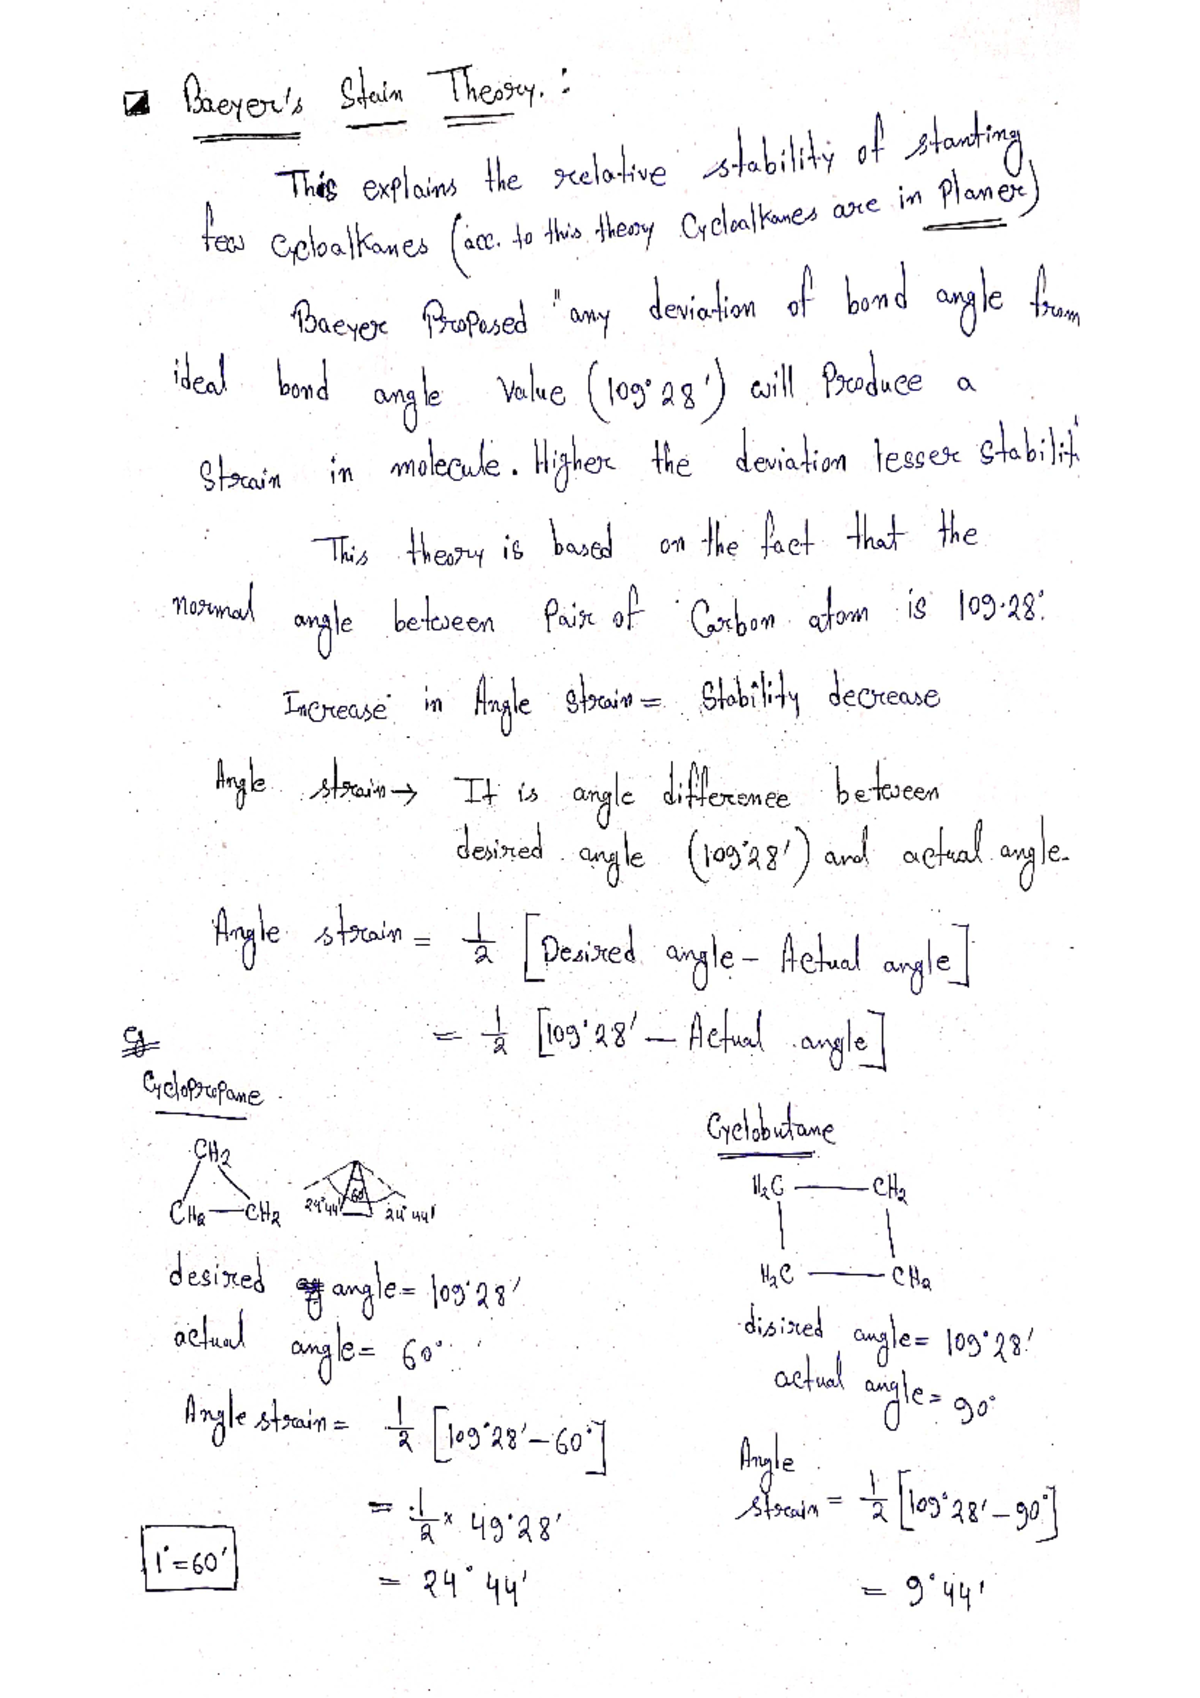 Baeyer's Stain Theory. :
This explains the relative stability of stanting
few cycloalkanes (acc. to this theory Cycloalkanes are in Planer)
Baeyer Proposed "any deviation of bond angle from
ideal bond angle Value (109°28') will Produce a
Strain in molecule. Higher the deviation lesser stabilit
This theory is based on the fact that the
normal angle between Pair of Carbon atom is 109.28'.
Increase in Angle strain = Stability decrease
Angle strain → It is angle difference between
desired angle (109°28') and actual angle.
Angle strain = 1/2 [Desired angle - Actual angle]
= 1/2 [109°28' - Actual angle]
eg
Cyclopropane
CH2
CH2—CH2
24°44' 60° 24°44'
desired angle = 109°28'
actual angle = 60°
Angle strain = 1/2 [109°28' - 60°]
= 1/2 × 49°28'
1° = 60'
= 24° 44'
Cyclobutane
H2C — CH2
H2C — CH2
disired angle = 109°28'
actual angle = 90°
Angle
strain = 1/2 [109°28' - 90°]
= 9°44'